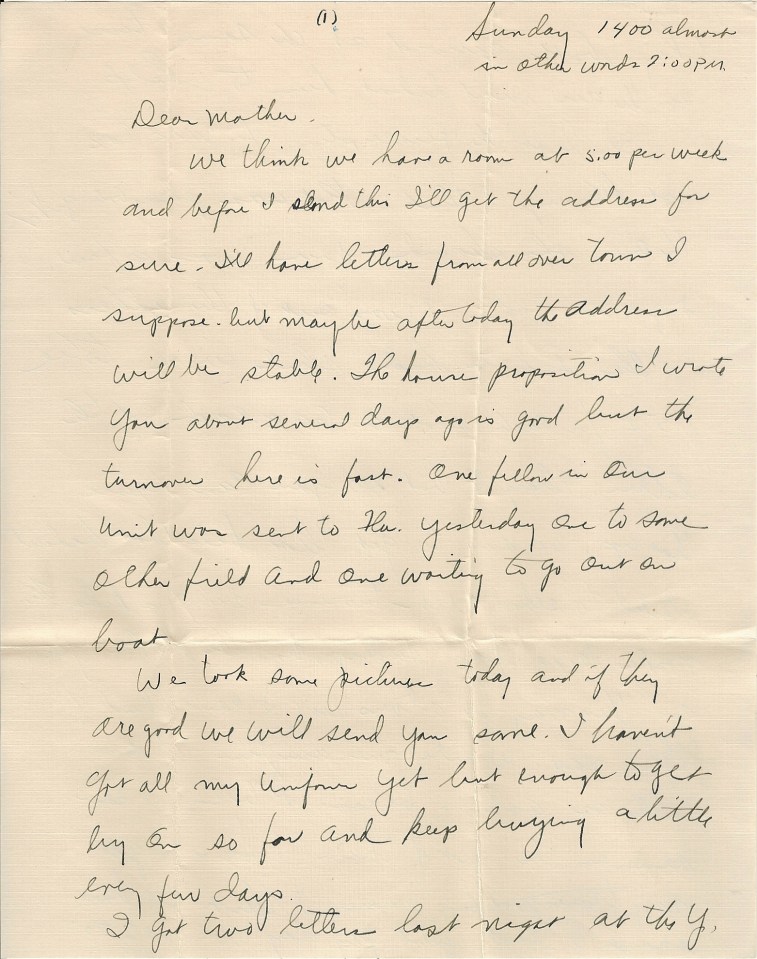 (1)
Sunday 1400 almost
in other words 2:00 P.M.
Dear Mother.
We think we have a room at 5.00 per week
and before I send this I'll get the address for
sure. I'll have letters from all over town I
suppose. but maybe after today the address
will be stable. The house proposition I wrote
you about several days ago is good but the
turnover here is fast. One fellow in our
unit was sent to Fla. yesterday one to some
other field and one waiting to go out on
boat.
We took some pictures today and if they
are good we will send you some. I haven't
got all my uniform yet but enough to get
by on so far and keep buying a little
every few days.
I got two letters last night at the Y.